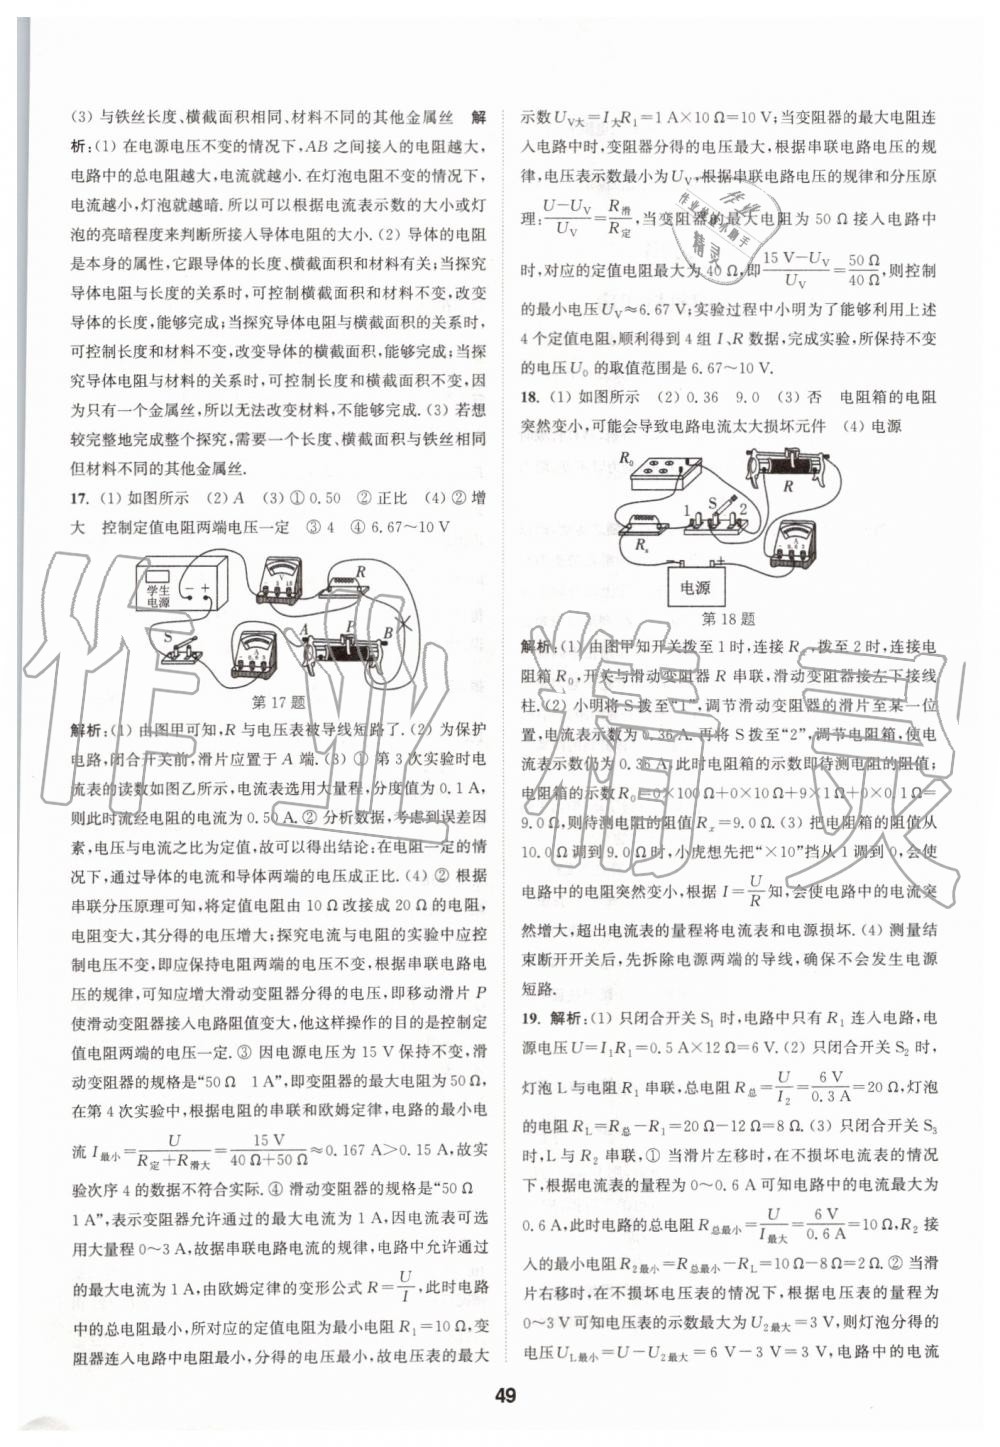 (3) 与铁丝长度、横截面积相同、材料不同的其他金属丝 解
析:(1) 在电源电压不变的情况下,AB 之间接入的电阻越大,
电路中的总电阻越大,电流就越小. 在灯泡电阻不变的情况下,
电流越小,灯泡就越暗. 所以可以根据电流表示数的大小或灯
泡的亮暗程度来判断所接入导体电阻的大小. (2) 导体的电阻
是本身的属性,它跟导体的长度、横截面积和材料有关;当探究
导体电阻与长度的关系时,可控制横截面积和材料不变,改变
导体的长度,能够完成;当探究导体电阻与横截面积的关系时,
可控制长度和材料不变,改变导体的横截面积,能够完成;当探
究导体电阻与材料的关系时,可控制长度和横截面积不变,因
为只有一个金属丝,所以无法改变材料,不能够完成. (3) 若想
较完整地完成整个探究,需要一个长度、横截面积与铁丝相同
但材料不同的其他金属丝.
17. (1) 如图所示 (2) A (3) ① 0.50 ② 正比 (4) ② 增
大 控制定值电阻两端电压一定 ③ 4 ④ 6.67~10 V
学生
电源 - +
V
R
S
A
A P B
第 17 题
解析:(1) 由图甲可知,R 与电压表被导线短路了. (2) 为保护
电路,闭合开关前,滑片应置于 A 端. (3) ① 第 3 次实验时电
流表的读数如图乙所示,电流表选用大量程,分度值为 0.1 A,
则此时流经电阻的电流为 0.50 A. ② 分析数据,考虑到误差因
素,电压与电流之比为定值,故可以得出结论:在电阻一定的情
况下,通过导体的电流和导体两端的电压成正比. (4) ② 根据
串联分压原理可知,将定值电阻由 10 Ω 改接成 20 Ω 的电阻,
电阻变大,其分得的电压增大;探究电流与电阻的实验中应控
制电压不变,即应保持电阻两端的电压不变,根据串联电路电
压的规律,可知应增大滑动变阻器分得的电压,即移动滑片 P
使滑动变阻器接入电路阻值变大,他这样操作的目的是控制定
值电阻两端的电压一定. ③ 因电源电压为 15 V 保持不变,滑
动变阻器的规格是“50 Ω 1 A”,即变阻器的最大电阻为 50 Ω,
在第 4 次实验中,根据电阻的串联和欧姆定律,电路的最小电
流 I最小=U/(R定+R滑大)=15 V/(40 Ω+50 Ω)≈0.167 A>0.15 A,故实
验次序 4 的数据不符合实际. ④ 滑动变阻器的规格是“50 Ω
1 A”,表示变阻器允许通过的最大电流为 1 A,因电流表可选
用大量程 0~3 A,故据串联电路电流的规律,电路中允许通过
的最大电流为 1 A,由欧姆定律的变形公式 R=U/I,此时电路
中的总电阻最小,所对应的定值电阻为最小电阻 R1=10 Ω,变
阻器连入电路中电阻最小,分得的电压最小,故电压表的最大
示数 UV大=I大R1=1 A×10 Ω=10 V;当变阻器的最大电阻连
入电路中时,变阻器分得的电压最大,根据串联电路电压的规
律,电压表示数最小为 UV,根据串联电路电压的规律和分压原
理:(U-UV)/UV=R滑/R定,当变阻器的最大电阻为 50 Ω 接入电路中
时,对应的定值电阻最大为 40 Ω,即(15 V-UV)/UV=50 Ω/40 Ω,则控制
的最小电压 UV≈6.67 V;实验过程中小明为了能够利用上述
4 个定值电阻,顺利得到 4 组 I、R 数据,完成实验,所保持不变
的电压 U0 的取值范围是 6.67~10 V.
18. (1) 如图所示 (2) 0.36 9.0 (3) 否 电阻箱的电阻
突然变小,可能会导致电路电流太大损坏元件 (4) 电源
R0
R
1 S 2
Rx
A
电源
第 18 题
解析:(1) 由图甲知开关拨至 1 时,连接 Rx,拨至 2 时,连接电
阻箱 R0,开关与滑动变阻器 R 串联,滑动变阻器接左下接线
柱. (2) 小明将 S 拨至“1”,调节滑动变阻器的滑片至某一位
置,电流表示数为 0.36 A. 再将 S 拨至“2”,调节电阻箱,使电
流表示数仍为 0.36 A. 此时电阻箱的示数即待测电阻的阻值;
电阻箱的示数 R0=0×100 Ω+0×10 Ω+9×1 Ω+0×0.1 Ω=
9.0 Ω,则待测电阻的阻值 Rx=9.0 Ω. (3) 把电阻箱的阻值从
10.0 Ω 调到 9.0 Ω 时,小虎想先把“×10”挡从 1 调到 0,会使
电路中的电阻突然变小,根据 I=U/R 知,会使电路中的电流突
然增大,超出电流表的量程将电流表和电源损坏. (4) 测量结
束断开开关后,先拆除电源两端的导线,确保不会发生电源
短路.
19. 解析:(1) 只闭合开关 S1 时,电路中只有 R1 连入电路,电
源电压 U=I1R1=0.5 A×12 Ω=6 V. (2) 只闭合开关 S2 时,
灯泡 L 与电阻 R1 串联,总电阻 R总=U/I2=6 V/0.3 A=20 Ω,灯泡
的电阻 RL=R总-R1=20 Ω-12 Ω=8 Ω. (3) 只闭合开关 S3
时,L 与 R2 串联,① 当滑片左移时,在不损坏电流表的情况
下,根据电流表的量程为 0~0.6 A 可知电路中的电流最大为
0.6 A,此时电路的总电阻 R总最小=U/I最大=6 V/0.6 A=10 Ω,R2 接
入的最小电阻 R2最小=R总最小-RL=10 Ω-8 Ω=2 Ω. ② 当滑
片右移时,在不损坏电压表的情况下,根据电压表的量程为
0~3 V 可知电压表的示数最大为 U2最大=3 V,则灯泡分得的
电压 UL最小=U-U2最大=6 V-3 V=3 V,电路中的电流
49
作业精灵